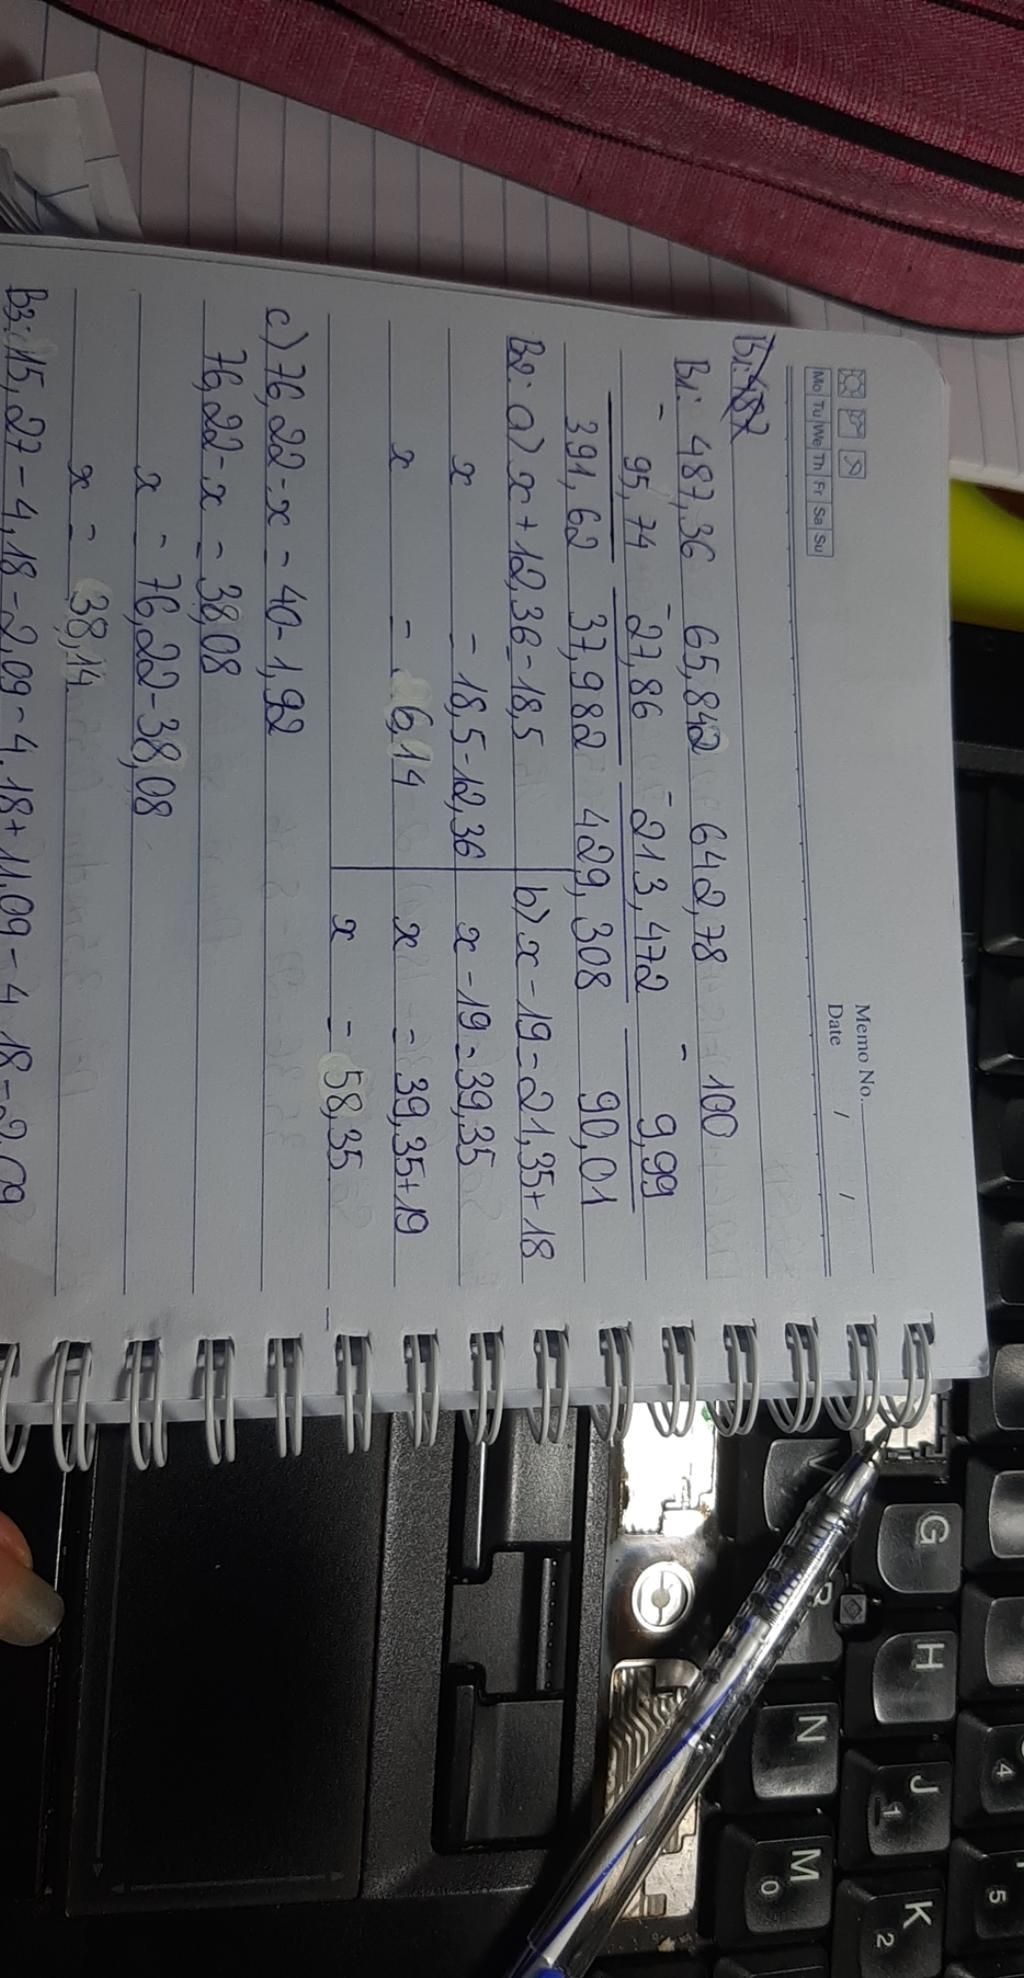 Memo No.
Mo Tu We Th Fr Sa Su
Date / /
B1: 487
B1: 487,36 65,842 642,78 - 100
- 95,74 - 27,86 - 213,472 9,99
391,62 37,982 429,308 90,01
B2: a) x + 12,36 = 18,5 b) x - 19 = 21,35 + 18
x = 18,5 - 12,36 x - 19 = 39,35
x = 6,14 x = 39,35 + 19
x = 58,35
c) 76,22 - x = 40 - 1,92
76,22 - x = 38,08
x = 76,22 - 38,08
x = 38,14
B3: 15,27 - 4,18 - 2,09 = 4,18 + 11,09 - 4,18 - 2,09
G
H
N
J
1
M
0
K
2
4
5